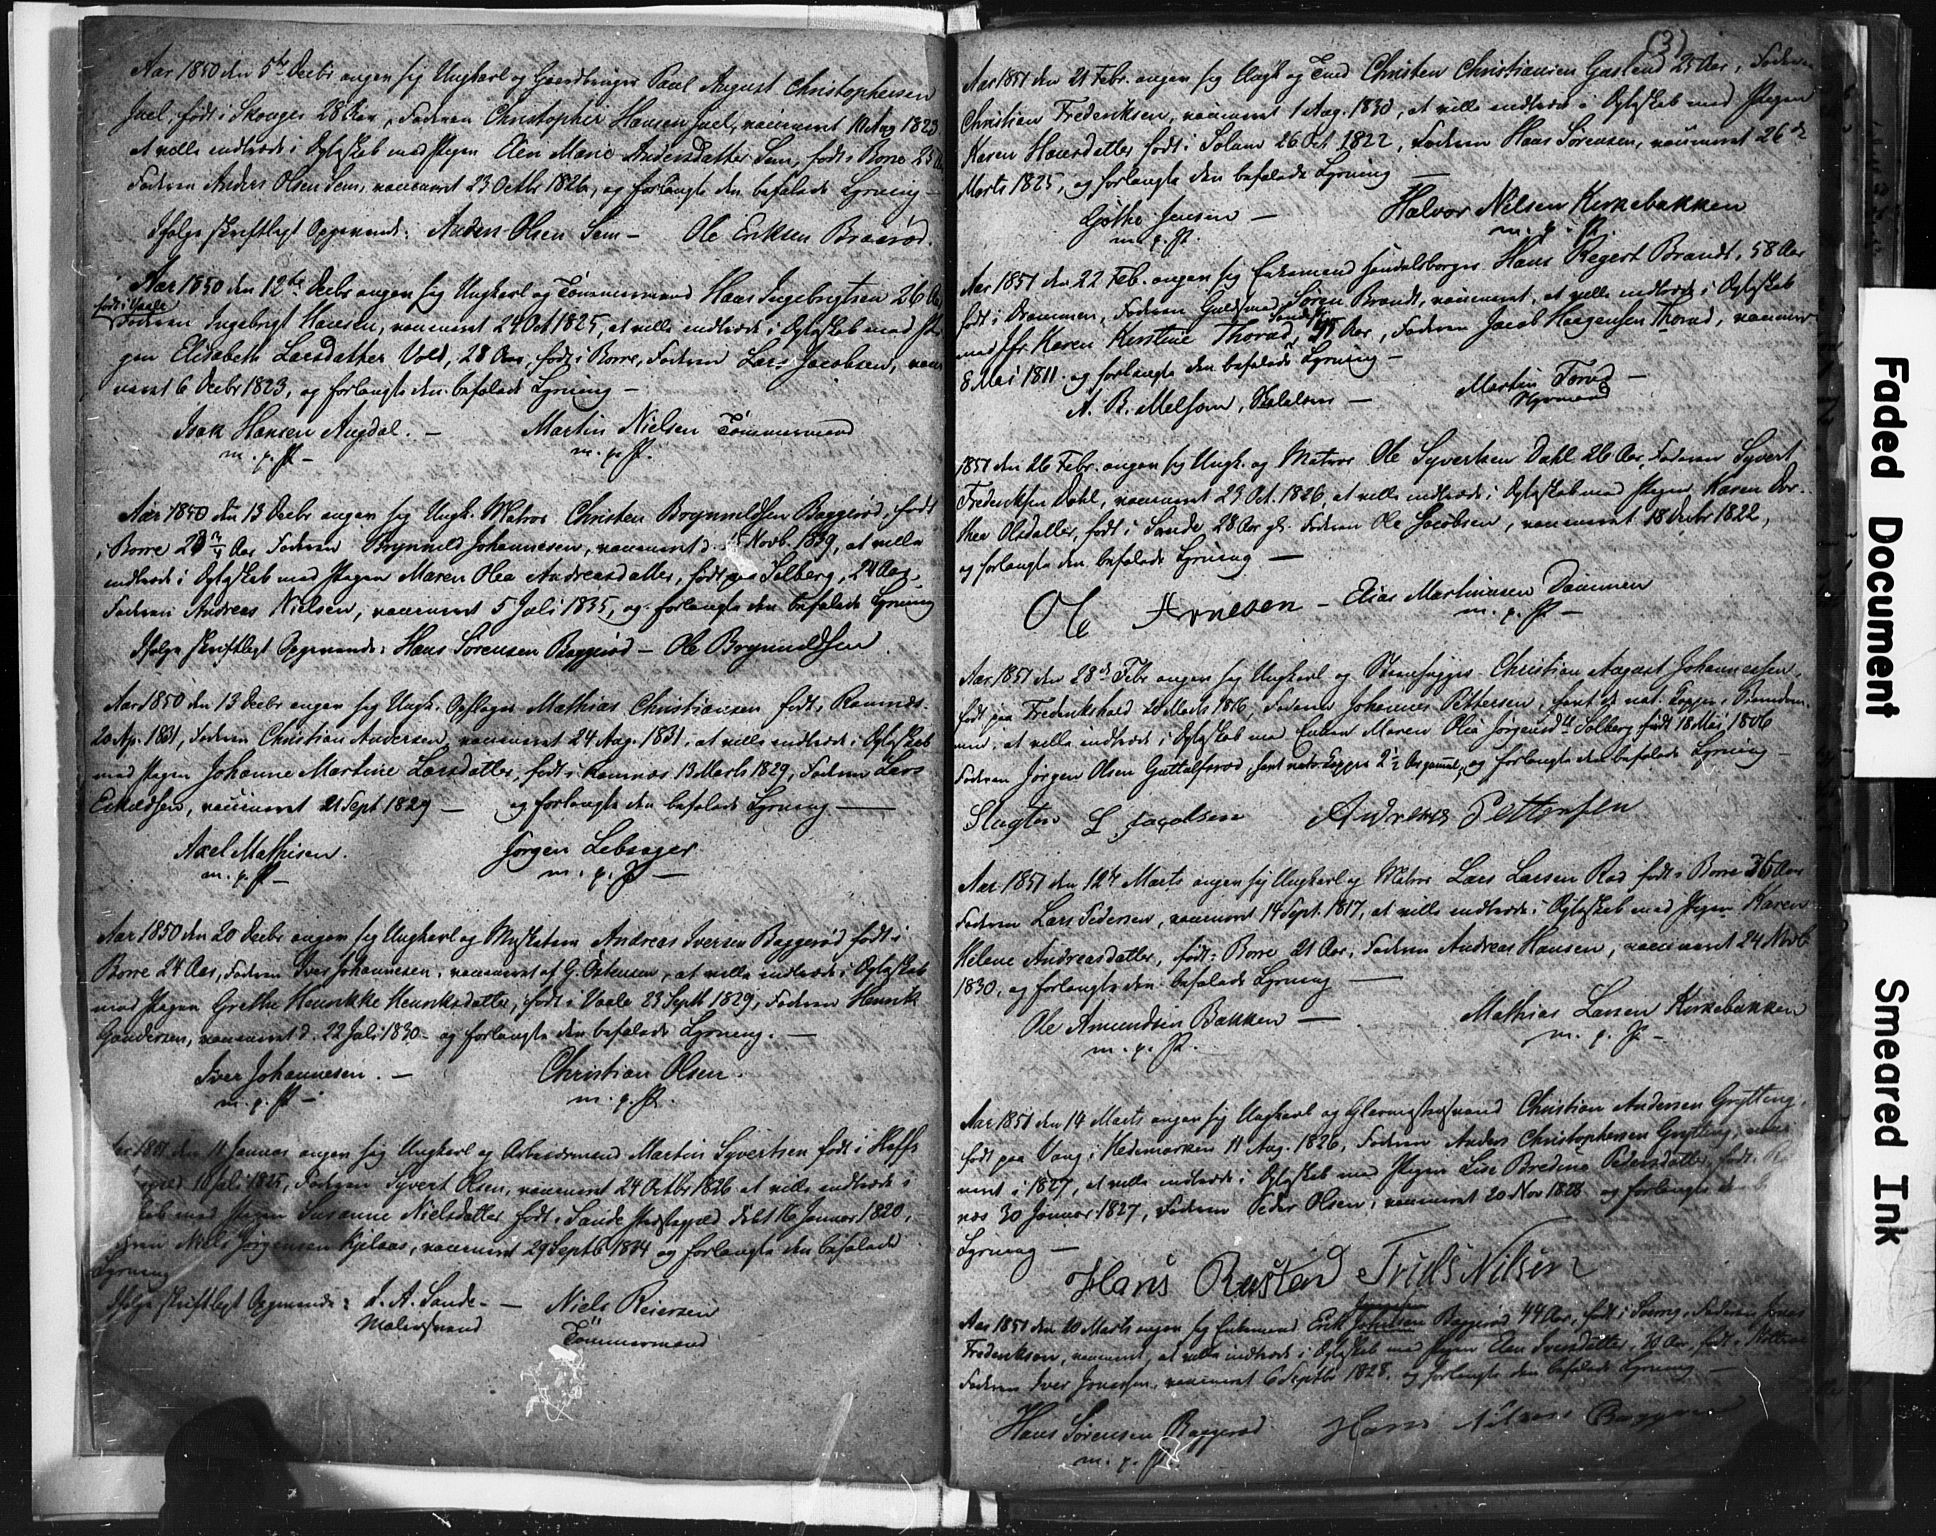 Aar 1850 den 5te Decbr angav sig Ungkarl og Gaardbruger Paul August Christophersen
Juel, født i Skouger 28 Aar, Faderen Christopher Hansen Juel, vaccineret 1823
at ville indtræde i Ægteskab med Pigen Elen Marie Andersdatter Sem, født i Borre 25
Faderen Anders Olsen Sem, vaccineret 23 Octbr 1826, og forlangte den befalede Lysning —
Ifølge skriftligt Opgivende: Anders Olsen Sem — Ole Eriksen Braarød.
Aar 1850 den 12te Decbr angav sig Ungkarl og Tømmermand Hans Ingebrigtsen 26 Aar
født i Vaale
Faderen Ingebrigt Hansen, vaccineret 29 Oct 1825, at ville indtræde i Ægteskab med Pi-
gen Elisabeth Larsdatter Vold, 28 Aar, født i Borre, Faderen Lars Jacobsen, vacci
neret 6 Decbr 1823, og forlangte den befalede Lysning —
Isak Hansen Augdal. — Martin Nielsen Tømmermand
m. p. P. — m. p. P.
Aar 1850 den 13 Decbr angav sig Ungk. Matros Christen Brynnildsen Baggerød, født
i Borre Aar Faderen Brynnild Johannesen, vaccineret d. Novb. 1829, at ville
indtræde i Ægteskab med Pigen Maren Olea Andreasdatter, født paa Solberg, 24 Aar,
Faderen Andreas Nielsen, vaccineret 5 Juli 1835, og forlangte den befalede Lysning
Ifølge skriftligt Opgivende: Hans Sørensen Baggerød — Ole Brynnildsen.
Aar 1850 den 13 Decbr angav sig Ungk. Mathias Christiansen født i Ramnæs
20 Ap. 1831, Faderen Christian Andersen, vaccineret 24 Aug. 1831, at ville indtræde i Ægteskab
med Pigen Johanne Martine Larsdatter, født i Ramnæs 13 Marts 1829, Faderen Lars
vaccineret 21 Sept 1829 — og forlangte den befalede Lysning —
Axel Mathisen. Jørgen Lebsager
m. p. P — m. p. P —
Aar 1850 den 20 Decbr angav sig Ungkarl og Andreas Iversen Baggerød født i
Borre 24 Aar, Faderen Iver Johannesen, vaccineret af G. at ville indtræde i Ægteskab
med Pigen Grethe Henrikke Henriksdatter, født i Vaale 23 Septb 1829, Faderen Henrik
Gundersen, vaccineret d. 22 Juli 1830 — og forlangte den befalede Lysning. —
Iver Johannesen. — Christian Olsen.
m. p. P — m. p. P.
1851 den 11 Januar angav sig Ungkarl og Arbeidsmand Martin Syvertsen født i Hoffs
Juli 1825, Faderen Syvert Olsen, vaccineret 24 Octbr 1826 at ville indtræde i
med Pigen Susanne Nielsdatter født i Sande Præstegjeld Febr 16 Januar 1820,
Niels Jørgensen vaccineret 29 Septb og forlangte den befalede
Lysning
Ifølge skriftligt Opgivende: A. Sande — Niels Reiersen
Tømmermand
(3)
Aar 1851 den 21 Febr. angav sig Ungk og Christen Christiansen Gasland 25 Aar, Faderen
Christian Frederiksen, vaccineret 1 Aug. 1830, at ville indtræde i Ægteskab med Pigen
Karen Hansdatter født i Solum 26 Oct. 1822, Faderen Hans Sørensen, vaccineret 26de
Marts 1825, og forlangte den befalede Lysning —
Gøthe Jensen — Halvor Nilsen Kirkebakken
m. p. P. m. p. P.
Aar 1851 den 22 Feb. angav sig Enkemand Handelsborger Hans Regert Brandt, 58 Aar
født i Drammen, Faderen Guldsmed Søren Brandt, vaccineret, at ville indtræde i Ægteskab
med Jfr Karen Kirstine Thorad, 45 Aar, Faderen Jacob Haagensen Thorad, vaccineret
8 Mai 1811. og forlangte den befalede Lysning —
A. B. Melsom, — Martin Torød —
1851 den 26 Febr. angav sig Ungk. og Matros Ole Syvertsen Dahl 26 Aar, Faderen Syvert
Frederiksen Dahl, vaccineret 23 Oct. 1826, at ville indtræde i Ægteskab med Pigen Karen Dor-
thea Olsdatter, født i Sande 28 Aar gl. Faderen Ole Jacobsen, vaccineret 18 Decbr 1822,
og forlangte den befalede Lysning —
Ole Arnesen — Elias Martinusen Dammen
m. p. P —
Aar 1851 den 28de Febr angav sig Ungkarl og Steenhugger Christian August Johannessen,
født paa Frederikshald Marts 1816, Faderen Johannes Pettersen, havt de nat. Kopper i
at ville indtræde i Ægteskab med Enken Maren Olea Jørgensdtr Solberg født 18 Mai 1806
Faderen Jørgen Olsen havt nat. Kopper 2½ Aar gammel, og forlangte den befalede Lysning —
Slagter L. Jacobsen Andreas Pettersen
Aar 1851 den 12te Marts angav sig Ungkarl og Matros Lars Larsen Rød født i Borre 36 Aar
Faderen Lars Pedersen, vaccineret 14 Sept. 1817, at ville indtræde i Ægteskab med Pigen Karen
Helene Andreasdatter, født i Borre 21 Aar, Faderen Andreas Hansen, vaccineret 24 Novb
1830, og forlangte den befalede Lysning —
Ole Amundsen Bakken — Mathias Larsen Kirkebakken
m. p. P. m. p. P —
Aar 1851 den 14 Marts angav sig Ungkarl og Christian Andersen Grytting,
født paa Vang i Hedemarken 11 Aug. 1826, Faderen Anders Christophersen Grytting, vacci
neret i 1827, at ville indtræde i Ægteskab med Pigen Lise Bredine Pedersdatter, født i
næs 30 Januar 1827, Faderen Peder Olsen, vaccineret 20 Nov 1828 og forlangte
Lysning —
Hans Rasten Truls Nilsen
Aar 1851 den 20 Marts angav sig Enkemand Erik Baggerød 44 Aar, født i Faderen Jonas
Frederiksen, vaccineret, at ville indtræde i Ægteskab med Pigen Elen Iversdatter, 30 Aar, født i
Faderen Iver Jonassen, vaccineret 6 Septbr 1828. og forlangte den befalede Lysning —
Hans Sørensen Baggerød Hans Nilsen
m. p. P.
Faded Document
Smeared Ink